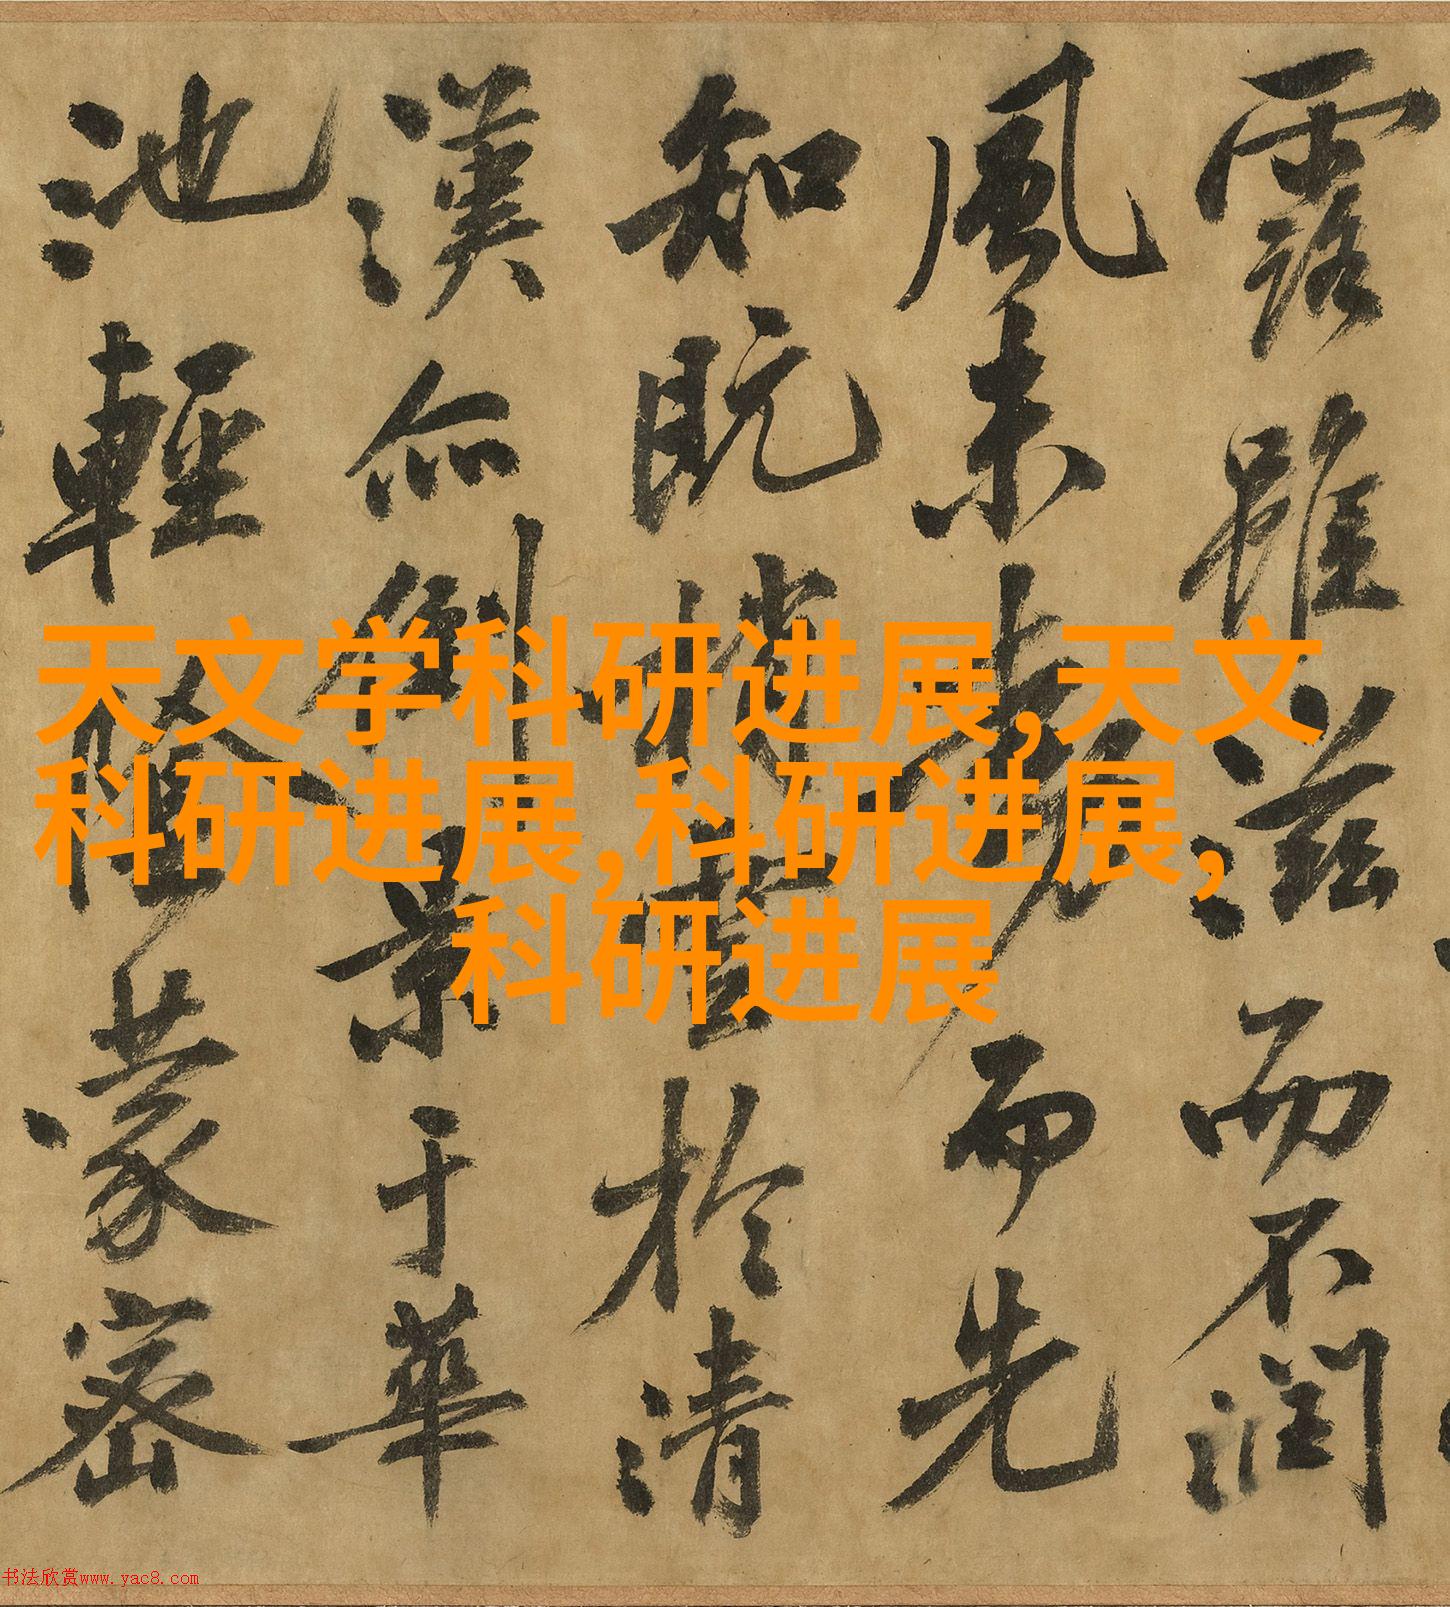 天文学科研进展,天文
科研进展,科研进展,
科研进展
露雖滋而不潤
風未而先
知既梢雲於清
漢亦倒景于華
池輕陰蒙密
书法欣赏www.yac8.com